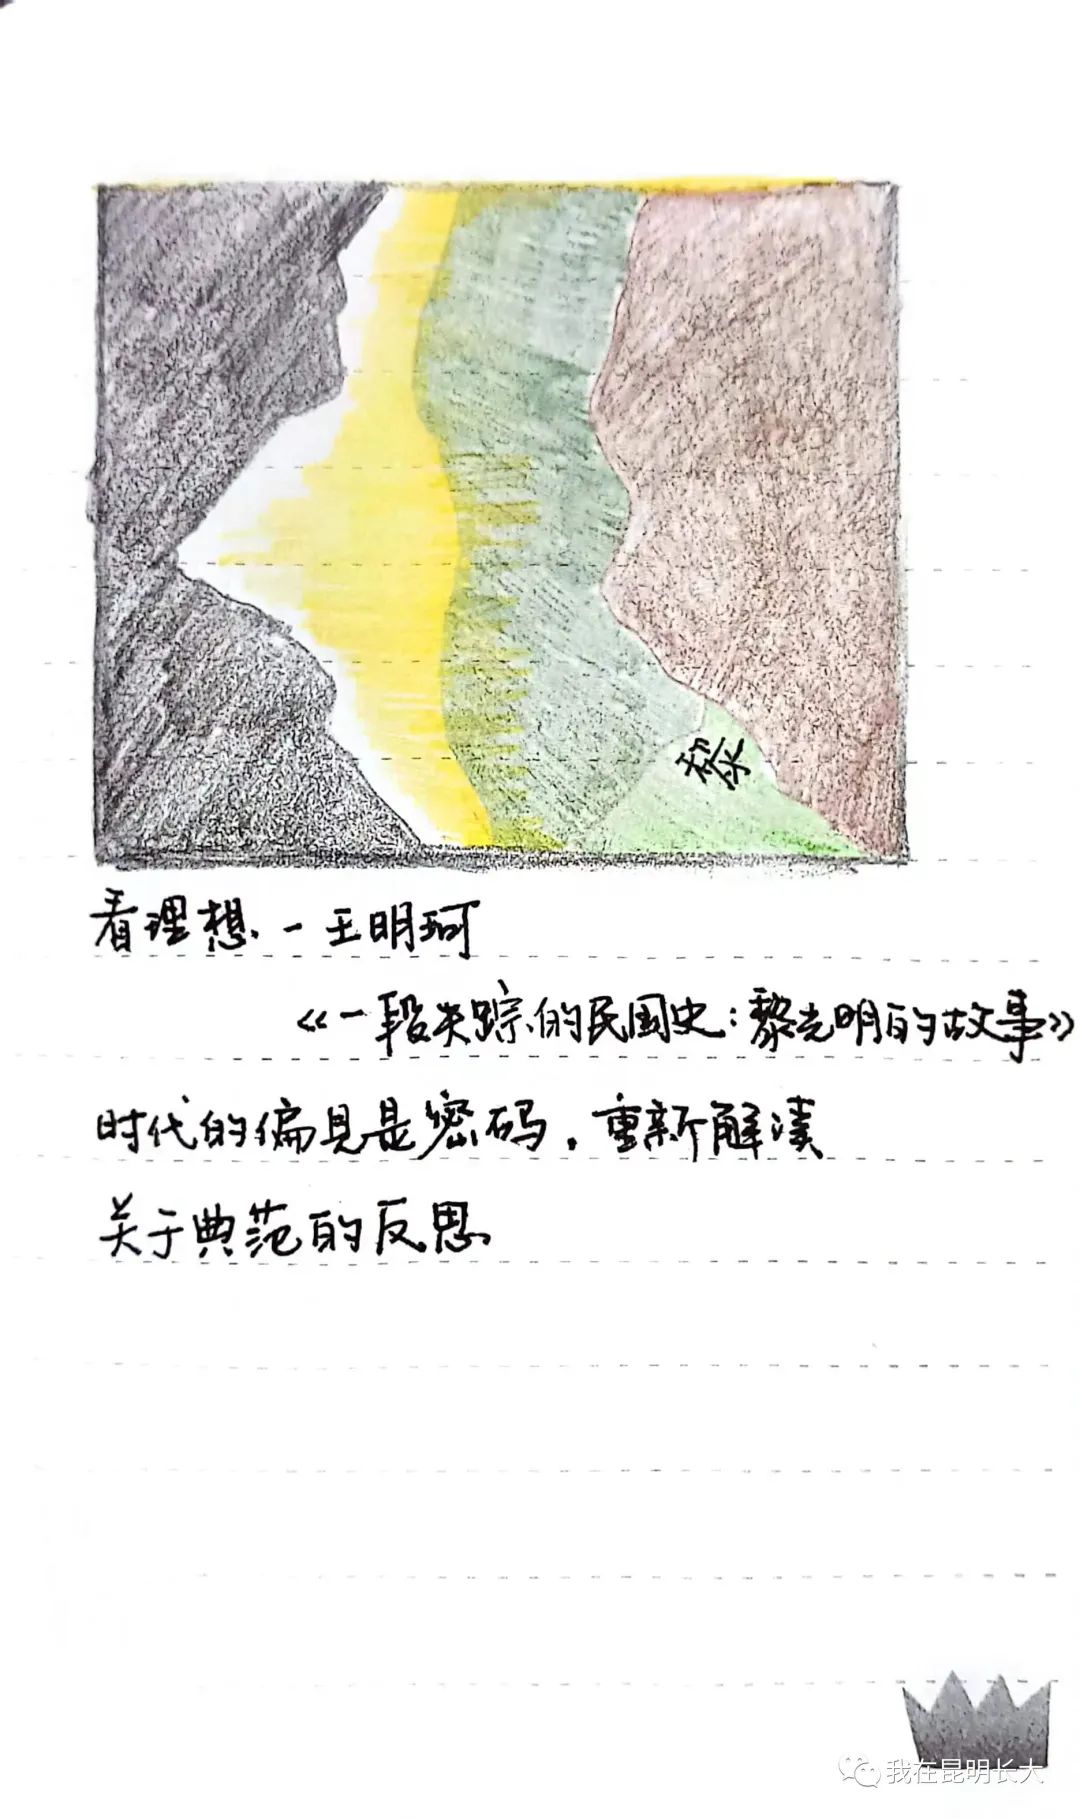 黎
看理想-王明珂
《一段失踪的民国史:黎光明的故事》
时代的偏见是密码,重新解读
关于典范的反思
我在昆明长大